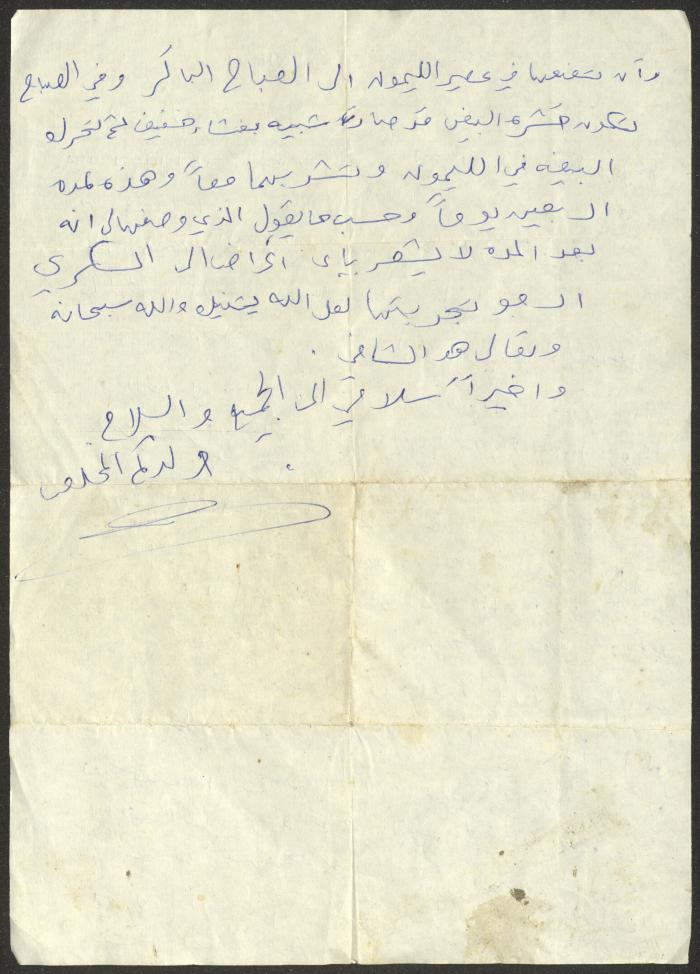 وأن تنقعها في عصير الليمون الى الصباح الباكر وفي الصباح
تكون قشره البيض قد صارت شبيه بغشاء خفيف ثم تحرك
البيضه في الليمون وتشربهما معاً وهذه لمده
اربعين يوماً وحسب ما يقول الذي وصفها لي انه
بعد المده لا يشعر بأى أعراض الى السكري
ارجو تجربتها لعل الله يشفيك والله سبحانه
وتعالى هو الشافي .
واخيراً سلامي الى الجميع والسلام
ولدكم المخلص